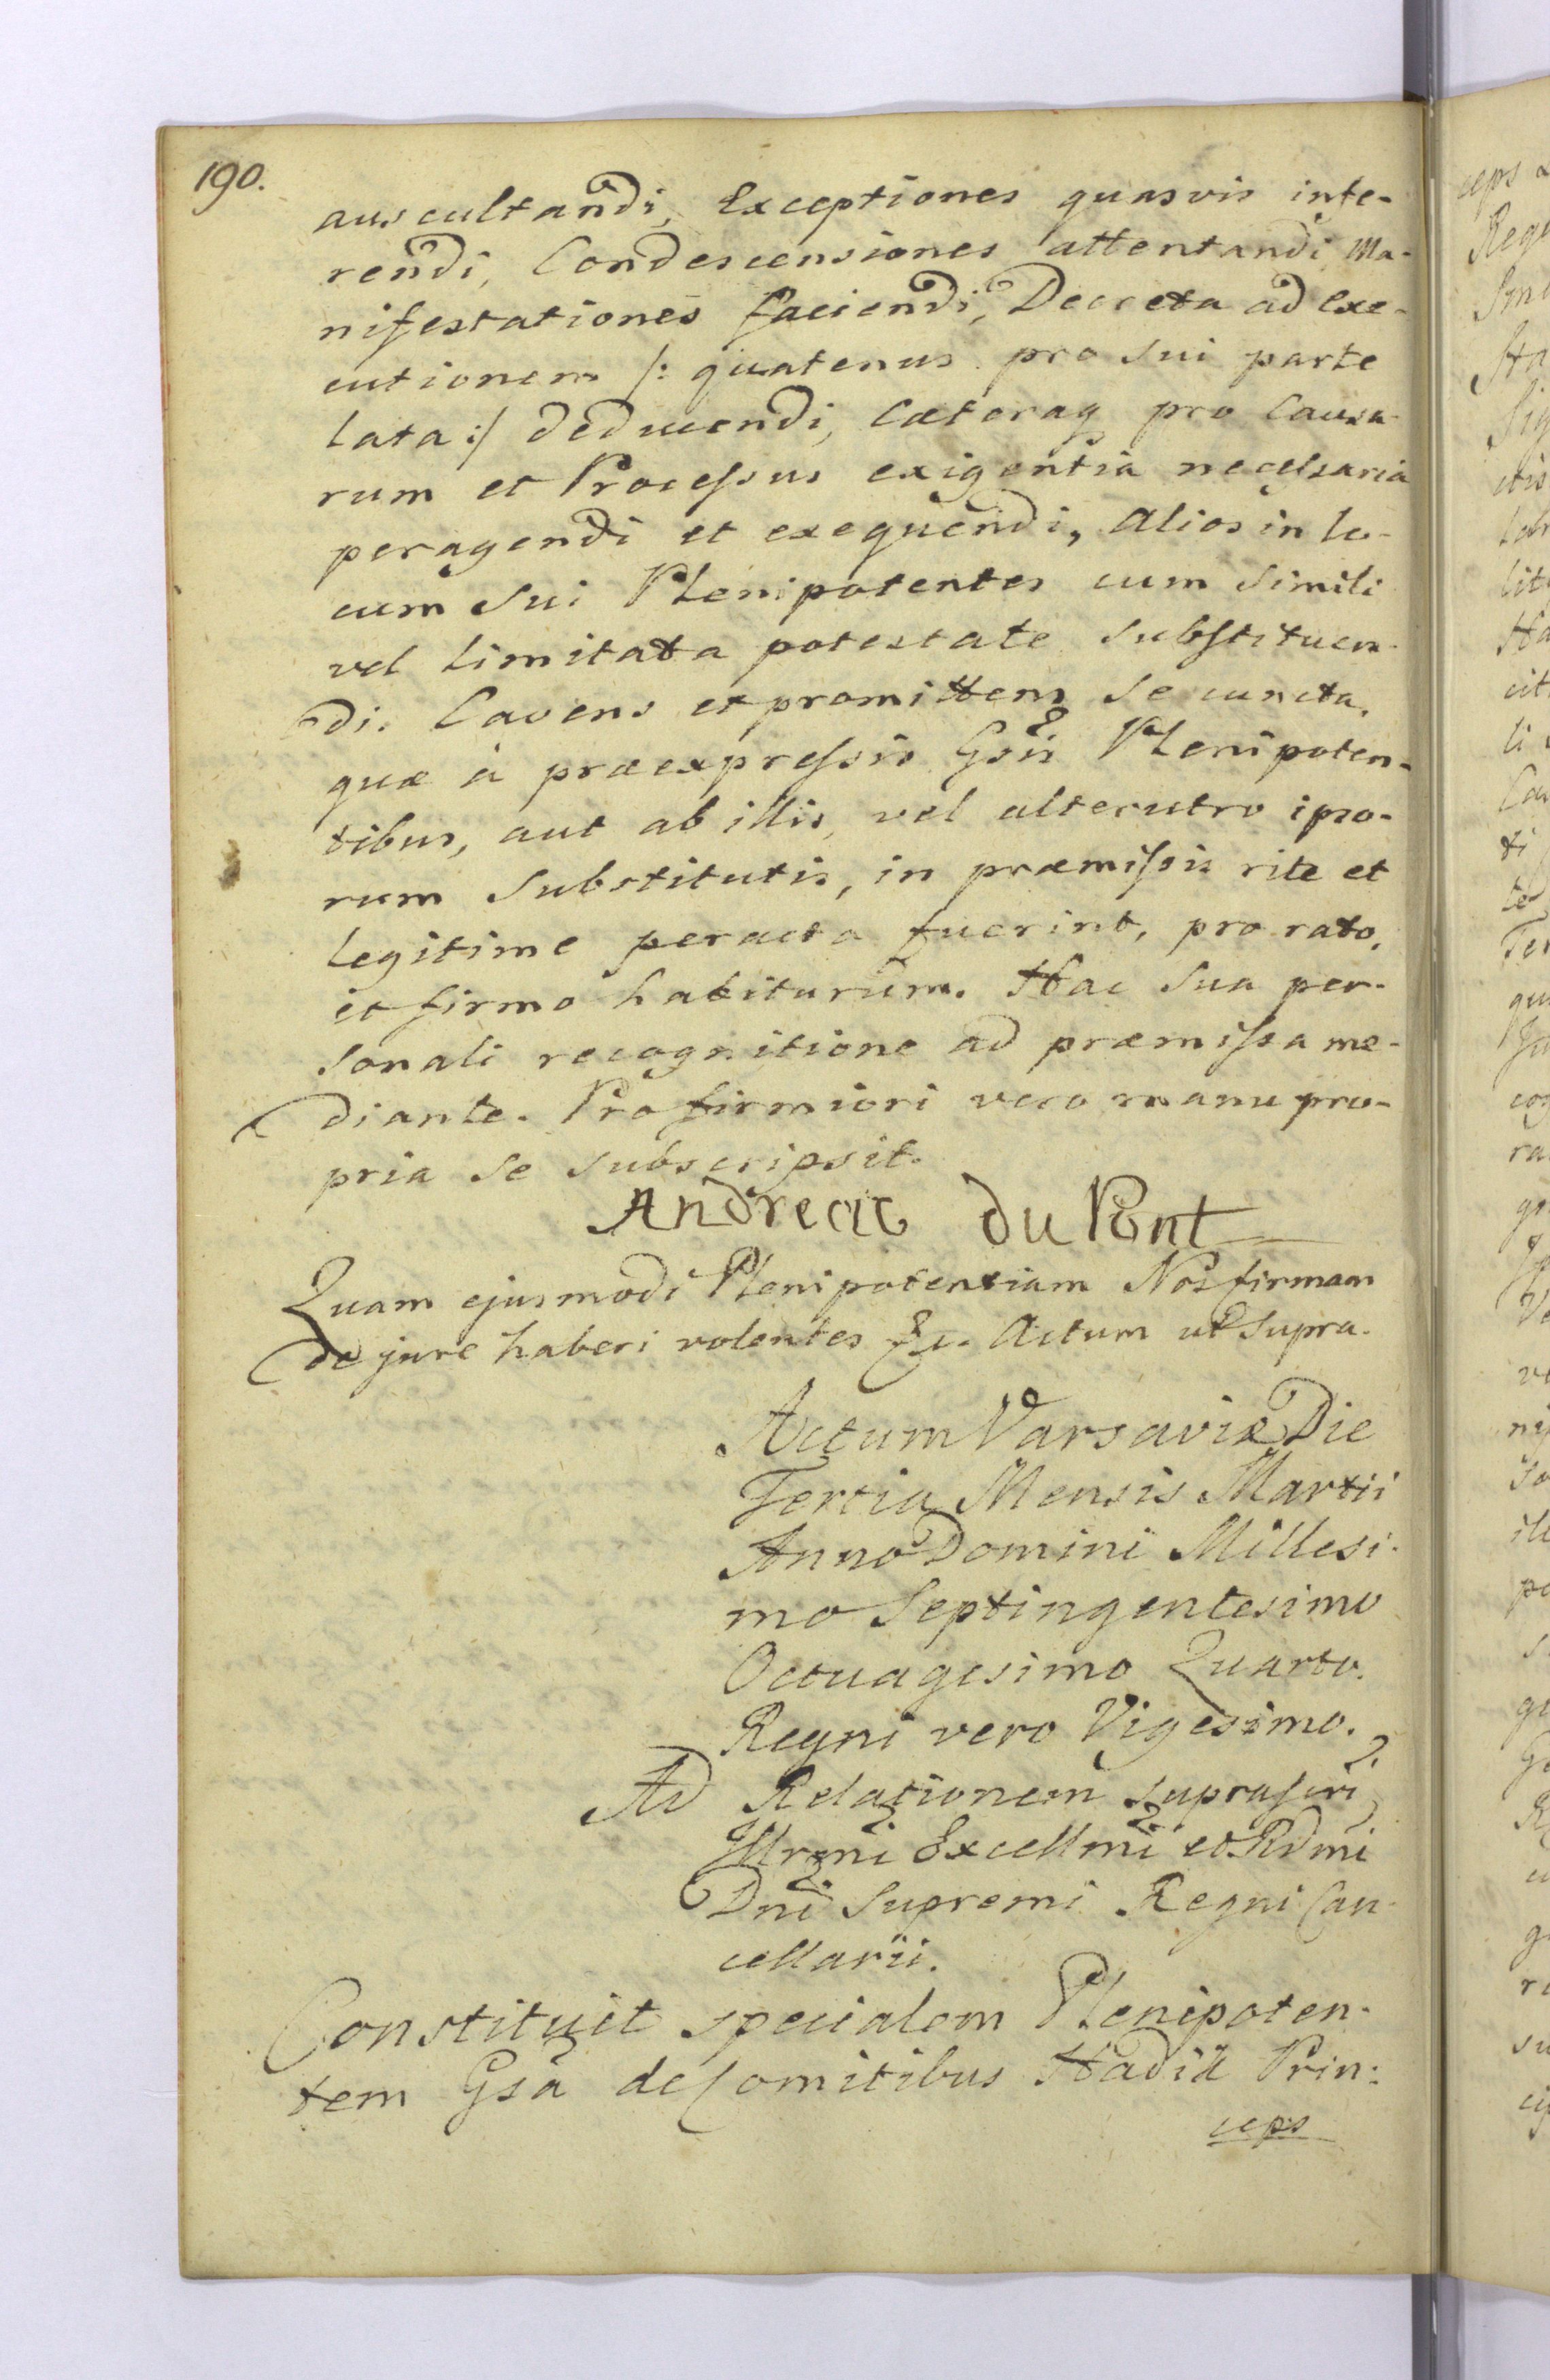 190.
auscultandi, Exceptiones quasvis infe-
rendi, Condescensiones attentandi Ma-
nifestationes faciendi, Decreta ad Exe-
cutionem /: quatenus pro sui parte
lata :/ deducendi, Cæteraq pro Causa-
rum et Processus exigentia necessaria
peragendi et exequendi, Alios in lo-
cum sui Plenipotentes cum simili
vel limitata potestate substituen-
di. Cavens et promittens se cuncta,
quæ à præexpressis Gsis Plenipoten-
tibus, aut ab illis, vel alterutro ipso-
rum substitutis, in præmissis rite et
legitime peracta fuerint, pro rato,
et firmo habiturum. Hac sua per-
sonali recognitione ad præmissa me-
diante. Pro firmiori vero manu pro-
pria se subscripsit.
Andreas du Pont
Quam ejusmodi Plenipotentiam Nos firmam
de jure haberi volentes &c. Actum ut supra.
Actum Varsaviæ Die
Tertia Mensis Martii
Anno Domini Millesi-
mo Septingentesimo
Octuagesimo Quarto.
Regni vero Vigesimo.
Ad Relationem suprascri
Illrmi Excellmi et Rdmi
Dni Supremi Regni Can-
cellarii.
Constituit specialem Plenipoten-
tem Gsa de Comitibus Hadik Prin:
ceps